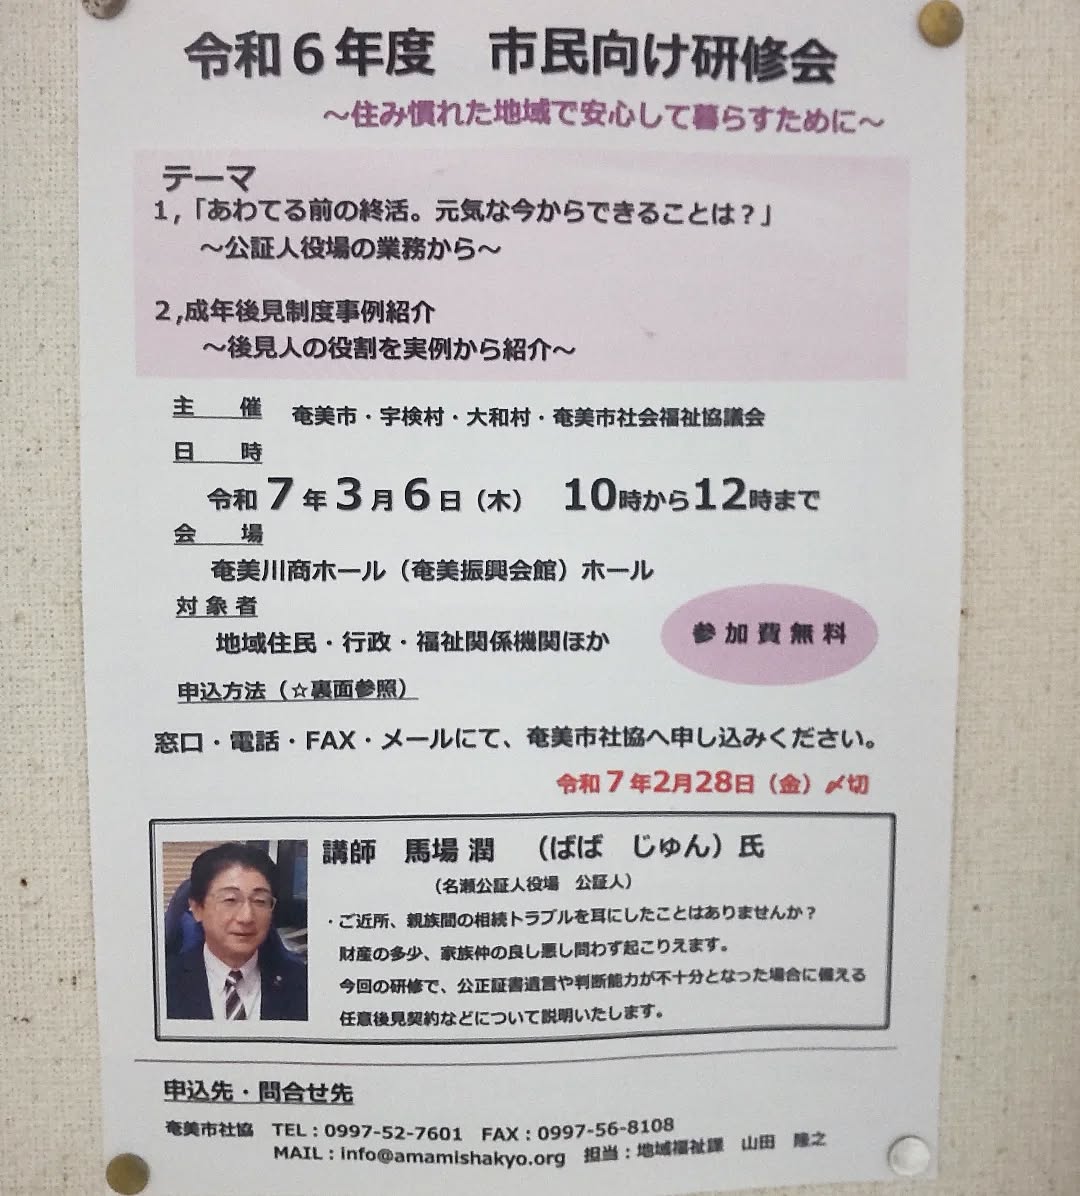 令和６年度　市民向け研修会
～住み慣れた地域で安心して暮らすために～
テーマ
１,「あわてる前の終活。元気な今からできることは？」
～公証人役場の業務から～
２,成年後見制度事例紹介
～後見人の役割を実例から紹介～
主　催　奄美市・宇検村・大和村・奄美市社会福祉協議会
日　時
令和７年３月６日（木）　10時から12時まで
会　場
奄美川商ホール（奄美振興会館）ホール
対象者
地域住民・行政・福祉関係機関ほか
参加費無料
申込方法（☆裏面参照）
窓口・電話・FAX・メールにて、奄美市社協へ申し込みください。
令和７年2月28日（金）〆切
講師　馬場 潤　（ばば　じゅん）氏
（名瀬公証人役場　公証人）
・ご近所、親族間の相続トラブルを耳にしたことはありませんか？
財産の多少、家族仲の良し悪し問わず起こりえます。
今回の研修で、公正証書遺言や判断能力が不十分となった場合に備える
任意後見契約などについて説明いたします。
申込先・問合せ先
奄美市社協　TEL：0997-52-7601　FAX：0997-56-8108
MAIL：info@amamishakyo.org　担当：地域福祉課　山田　隆之